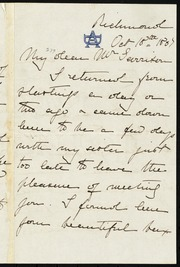 Richmond
Oct 15th 18
My dear Mr Garrison
I returned from
Hastings a day or
two ago & came down
here to be a few days
with my sister just
too late to have the
pleasure of meeting
you. I found here
your beautiful